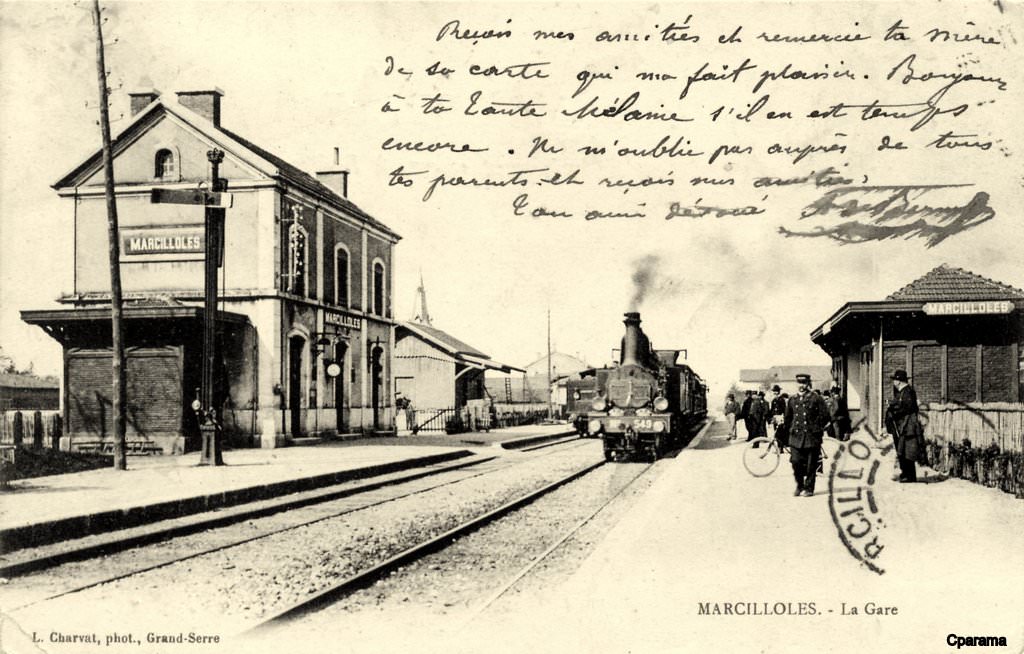 Reçois mes amitiés et remercie ta mère
de sa carte qui m'a fait plaisir. Bonjour
à ta Tante Mélanie s'il en est temps
encore. Ne m'oublie pas auprès de tous
tes parents et reçois mes amitiés
Ton ami dévoué
MARCILLOLES
MARCILLOLES
MARCILLOLES
549
RCILLOL
MARCILLOLES. - La Gare
L. Charvat, phot., Grand-Serre
Cparama